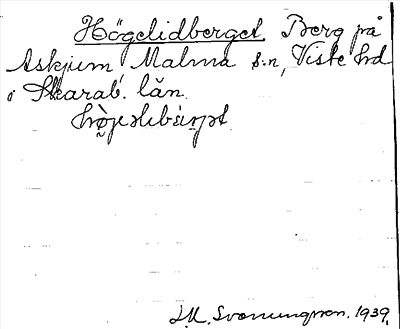 Högelidberget Berg på
Askjum, Malma s:n, Viste hd
i Skarab. län.
I.M. Svanungson. 1939.